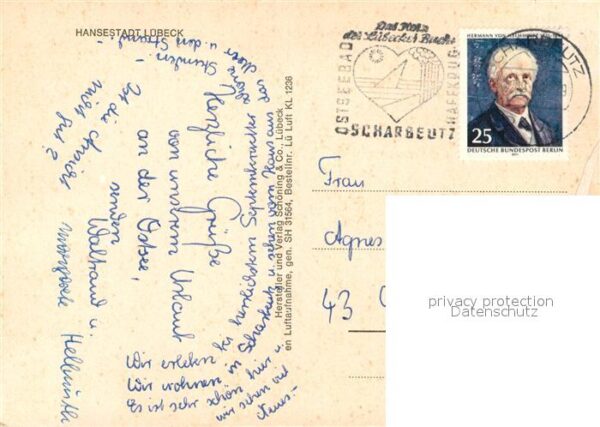 HANSESTADT LÜBECK
Das Herz
der Lübecker Bucht
OSTSEEBAD
HAFFKRUG
SCHARBEUTZ
HERMANN VON HELMHOLTZ
25
DEUTSCHE BUNDESPOST BERLIN
Hersteller und Verlag Schöning & Co., Lübeck
en Luftaufnahme, gen. SH 31564, Bestellnr. Lü Luft KL 1236
Frau
Agnes
43
privacy protection
Datenschutz
Herzliche Grüße
von unserem Urlaub
an der Ostsee,
senden
Waltraud u.
Hellmuth
Wir erleben
Wir wohnen in Scharbeutz u. sehen vom Haus aus
das Meer u. den Strand! -
Es ist sehr schön hier u.
wir sehen viel
Neues -
Ist die